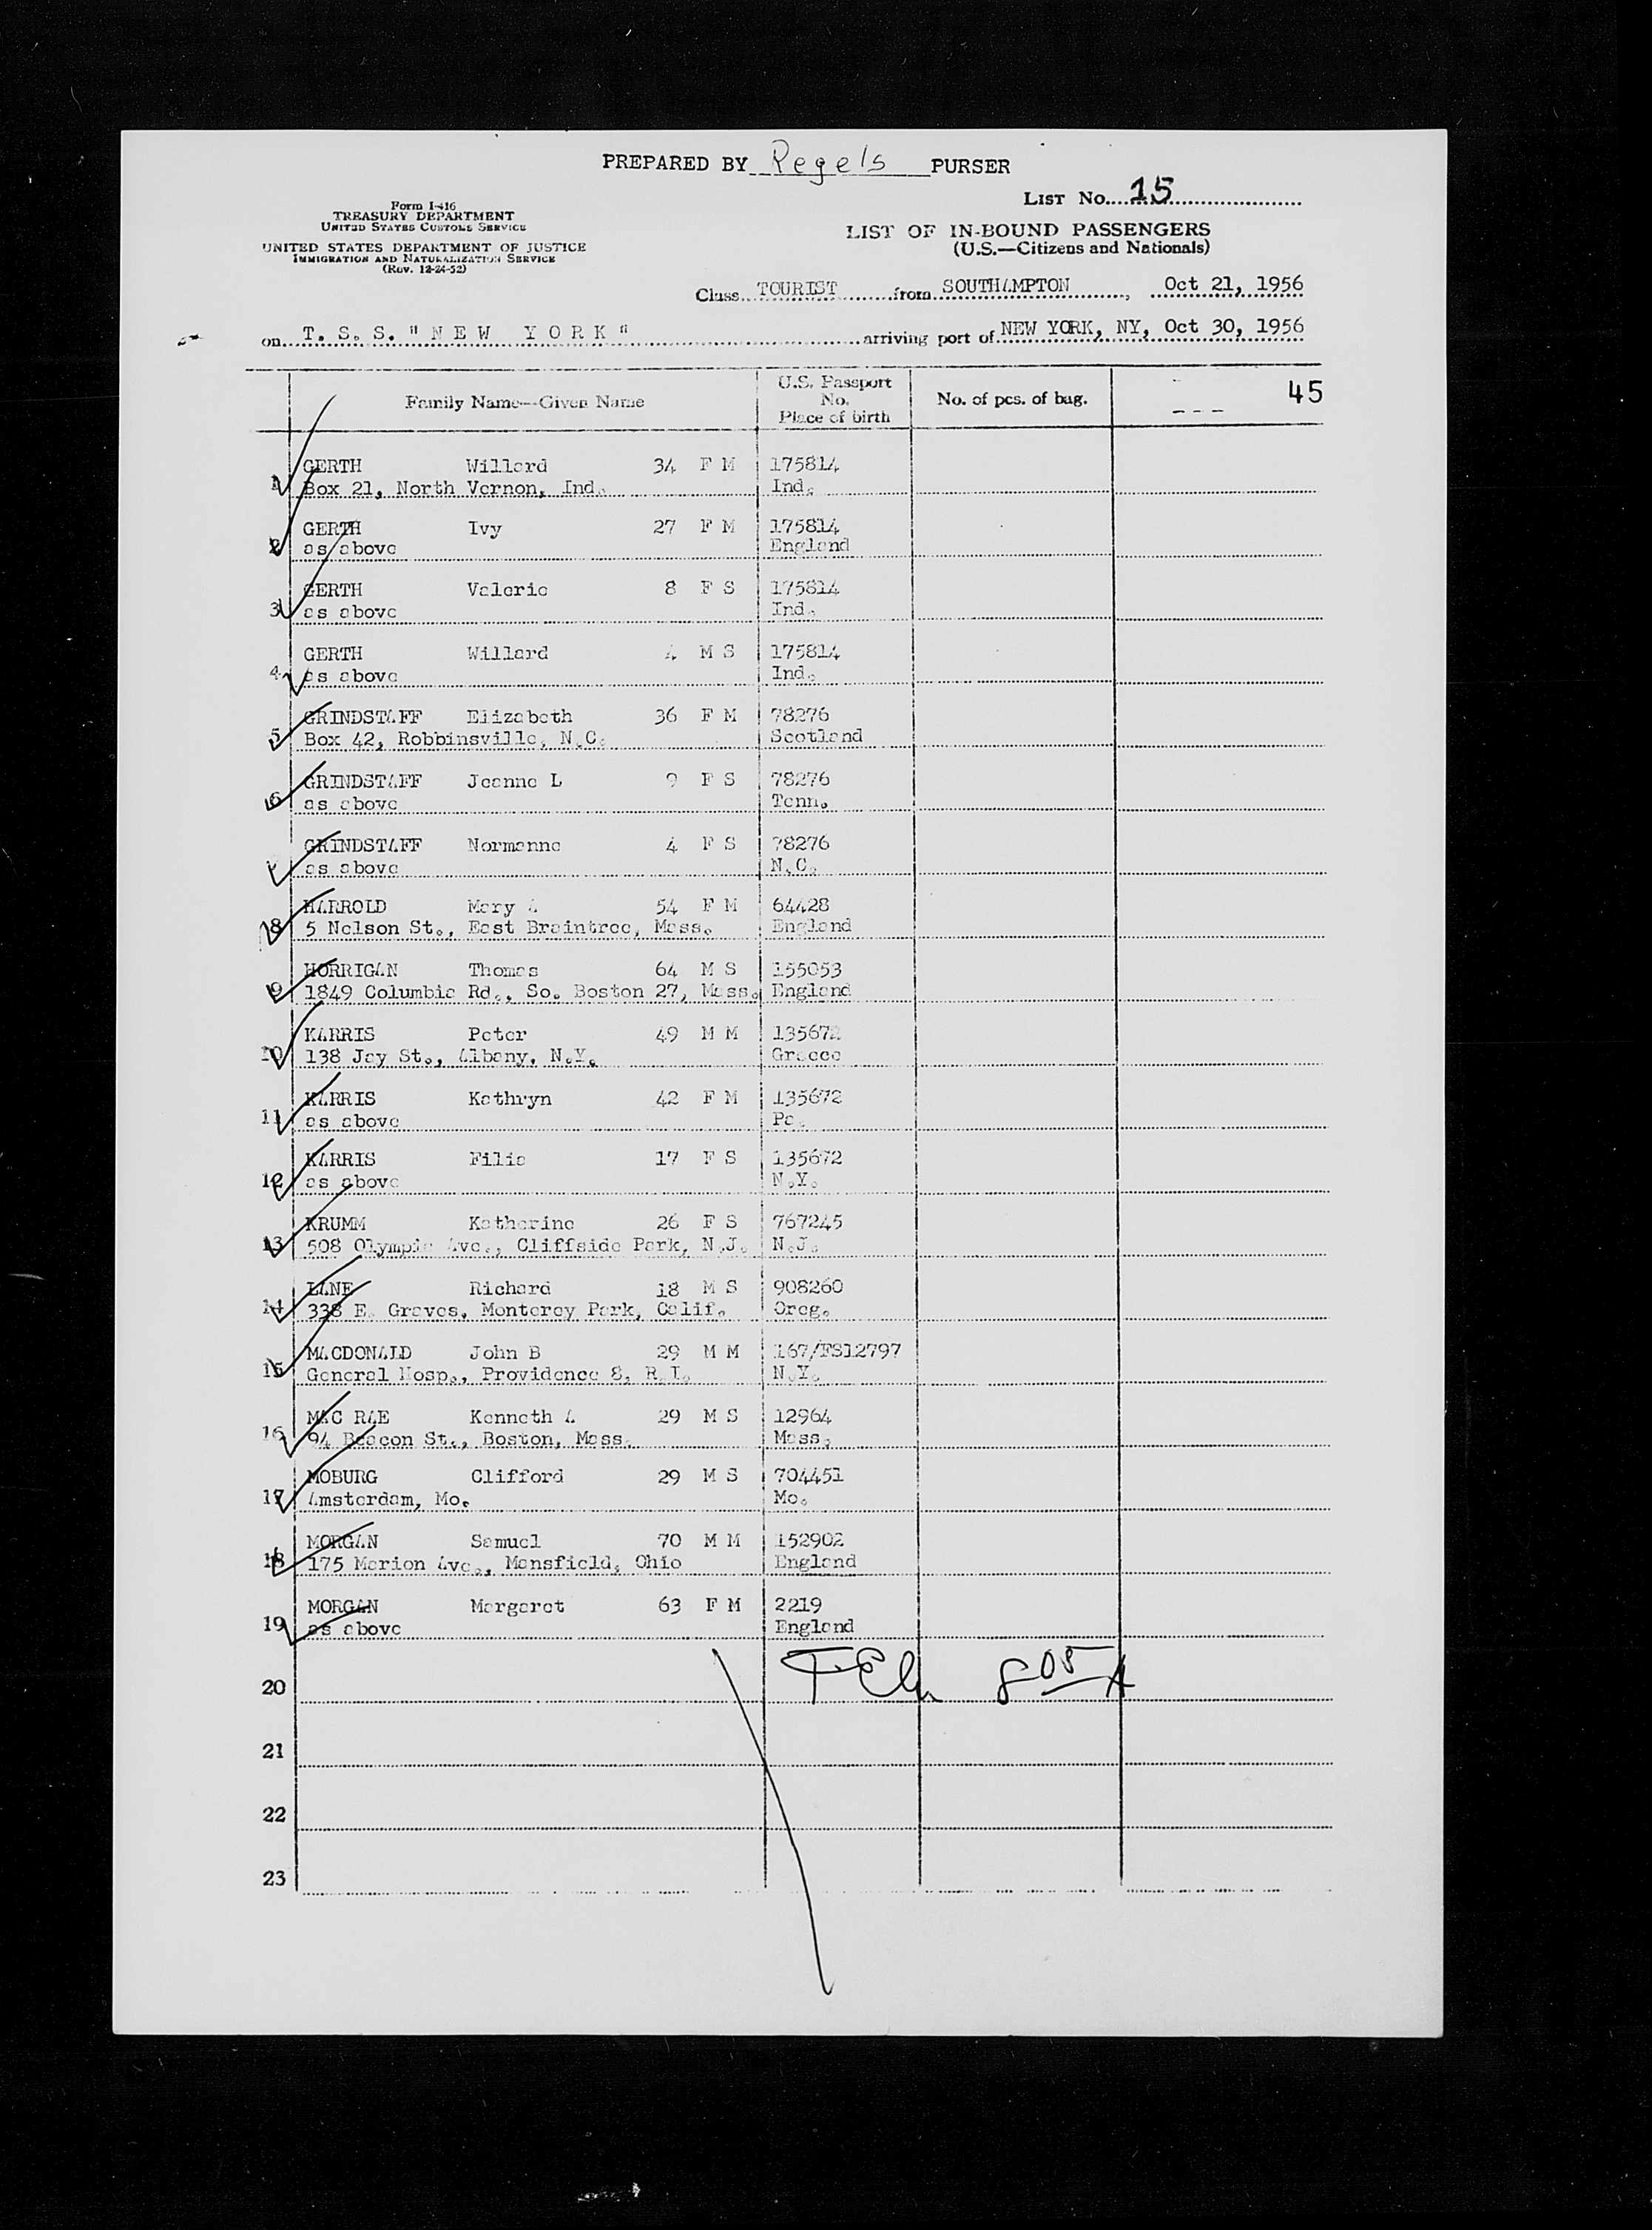 PREPARED BY Regels PURSER
LIST No. 15
Form I-416
TREASURY DEPARTMENT
UNITED STATES CUSTOMS SERVICE
UNITED STATES DEPARTMENT OF JUSTICE
IMMIGRATION AND NATURALIZATION SERVICE
(Rev. 12-24-52)
LIST OF IN-BOUND PASSENGERS
(U.S.—Citizens and Nationals)
Class TOURIST from SOUTHAMPTON, Oct 21, 1956
on T. S. S. "NEW YORK" arriving port of NEW YORK, NY, Oct 30, 1956
Family Name—Given Name U.S. Passport No. Place of birth No. of pcs. of bag. --- 45
1 GERTH Willard 34 F M 175814
Box 21, North Vernon, Ind. Ind.
2 GERTH Ivy 27 F M 175814
as above England
3 GERTH Valerie 8 F S 175814
as above Ind.
4 GERTH Willard 4 M S 175814
as above Ind.
5 GRINDSTAFF Elizabeth 36 F M 78276
Box 42, Robbinsville, N.C. Scotland
6 GRINDSTAFF Jeanne L 9 F S 78276
as above Tenn.
7 GRINDSTAFF Normanne 4 F S 78276
as above N.C.
8 HARROLD Mary A 54 F M 64428
5 Nelson St., East Braintree, Mass. England
9 HORRIGAN Thomas 64 M S 155053
1849 Columbia Rd., So. Boston 27, Mass. England
10 KARRIS Peter 49 M M 135672
138 Jay St., Albany, N.Y. Greece
11 KARRIS Kathryn 42 F M 135672
as above Pa.
12 KARRIS Filia 17 F S 135672
as above N.Y.
13 KRUMM Katherine 26 F S 767245
508 Olympia Ave., Cliffside Park, N.J. N.J.
14 LANE Richard 18 M S 908260
338 E. Graves, Monterey Park, Calif. Oreg.
15 MACDONALD John B 29 M M 167/FS12797
General Hosp., Providence 8, R.I. N.Y.
16 MAC RAE Kenneth A 29 M S 12964
94 Beacon St., Boston, Mass. Mass.
17 MOBURG Clifford 29 M S 704451
Amsterdam, Mo. Mo.
18 MORGAN Samuel 70 M M 152902
175 Marion Ave., Mansfield, Ohio England
19 MORGAN Margaret 63 F M 2219
as above England
20 805 A
21
22
23